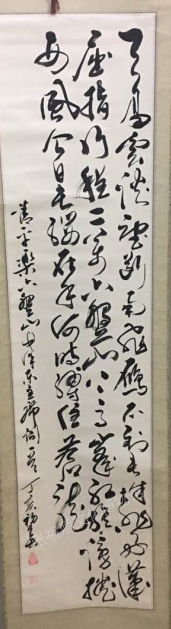 天高雲淡望斷南飛雁不到長城非好漢
屈指行程二万六盤山上高峰紅旗漫捲
西風今日長纓在手何時縛住蒼龍
清平樂六盤山毛澤東主席詞 丁亥